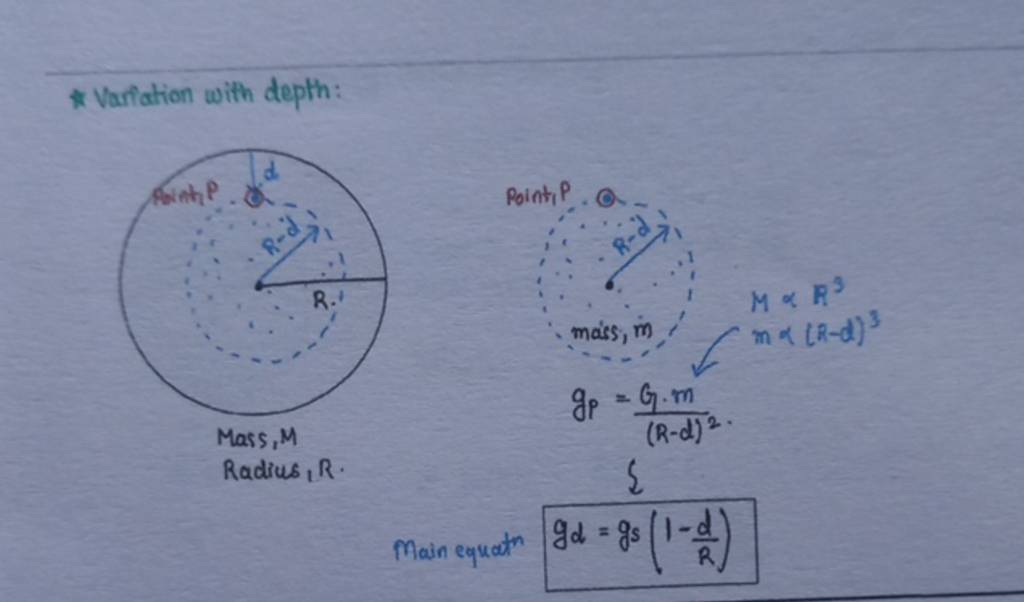 ★ Variation with depth:
d
Point, P
R-d
R.
Mass, M
Radius, R.
Point, P
R-d
mass, m
M ∝ R³
m ∝ (R-d)³
gₚ = G.m / (R-d)².
Main equatn
g_d = g_s (1 - d/R)